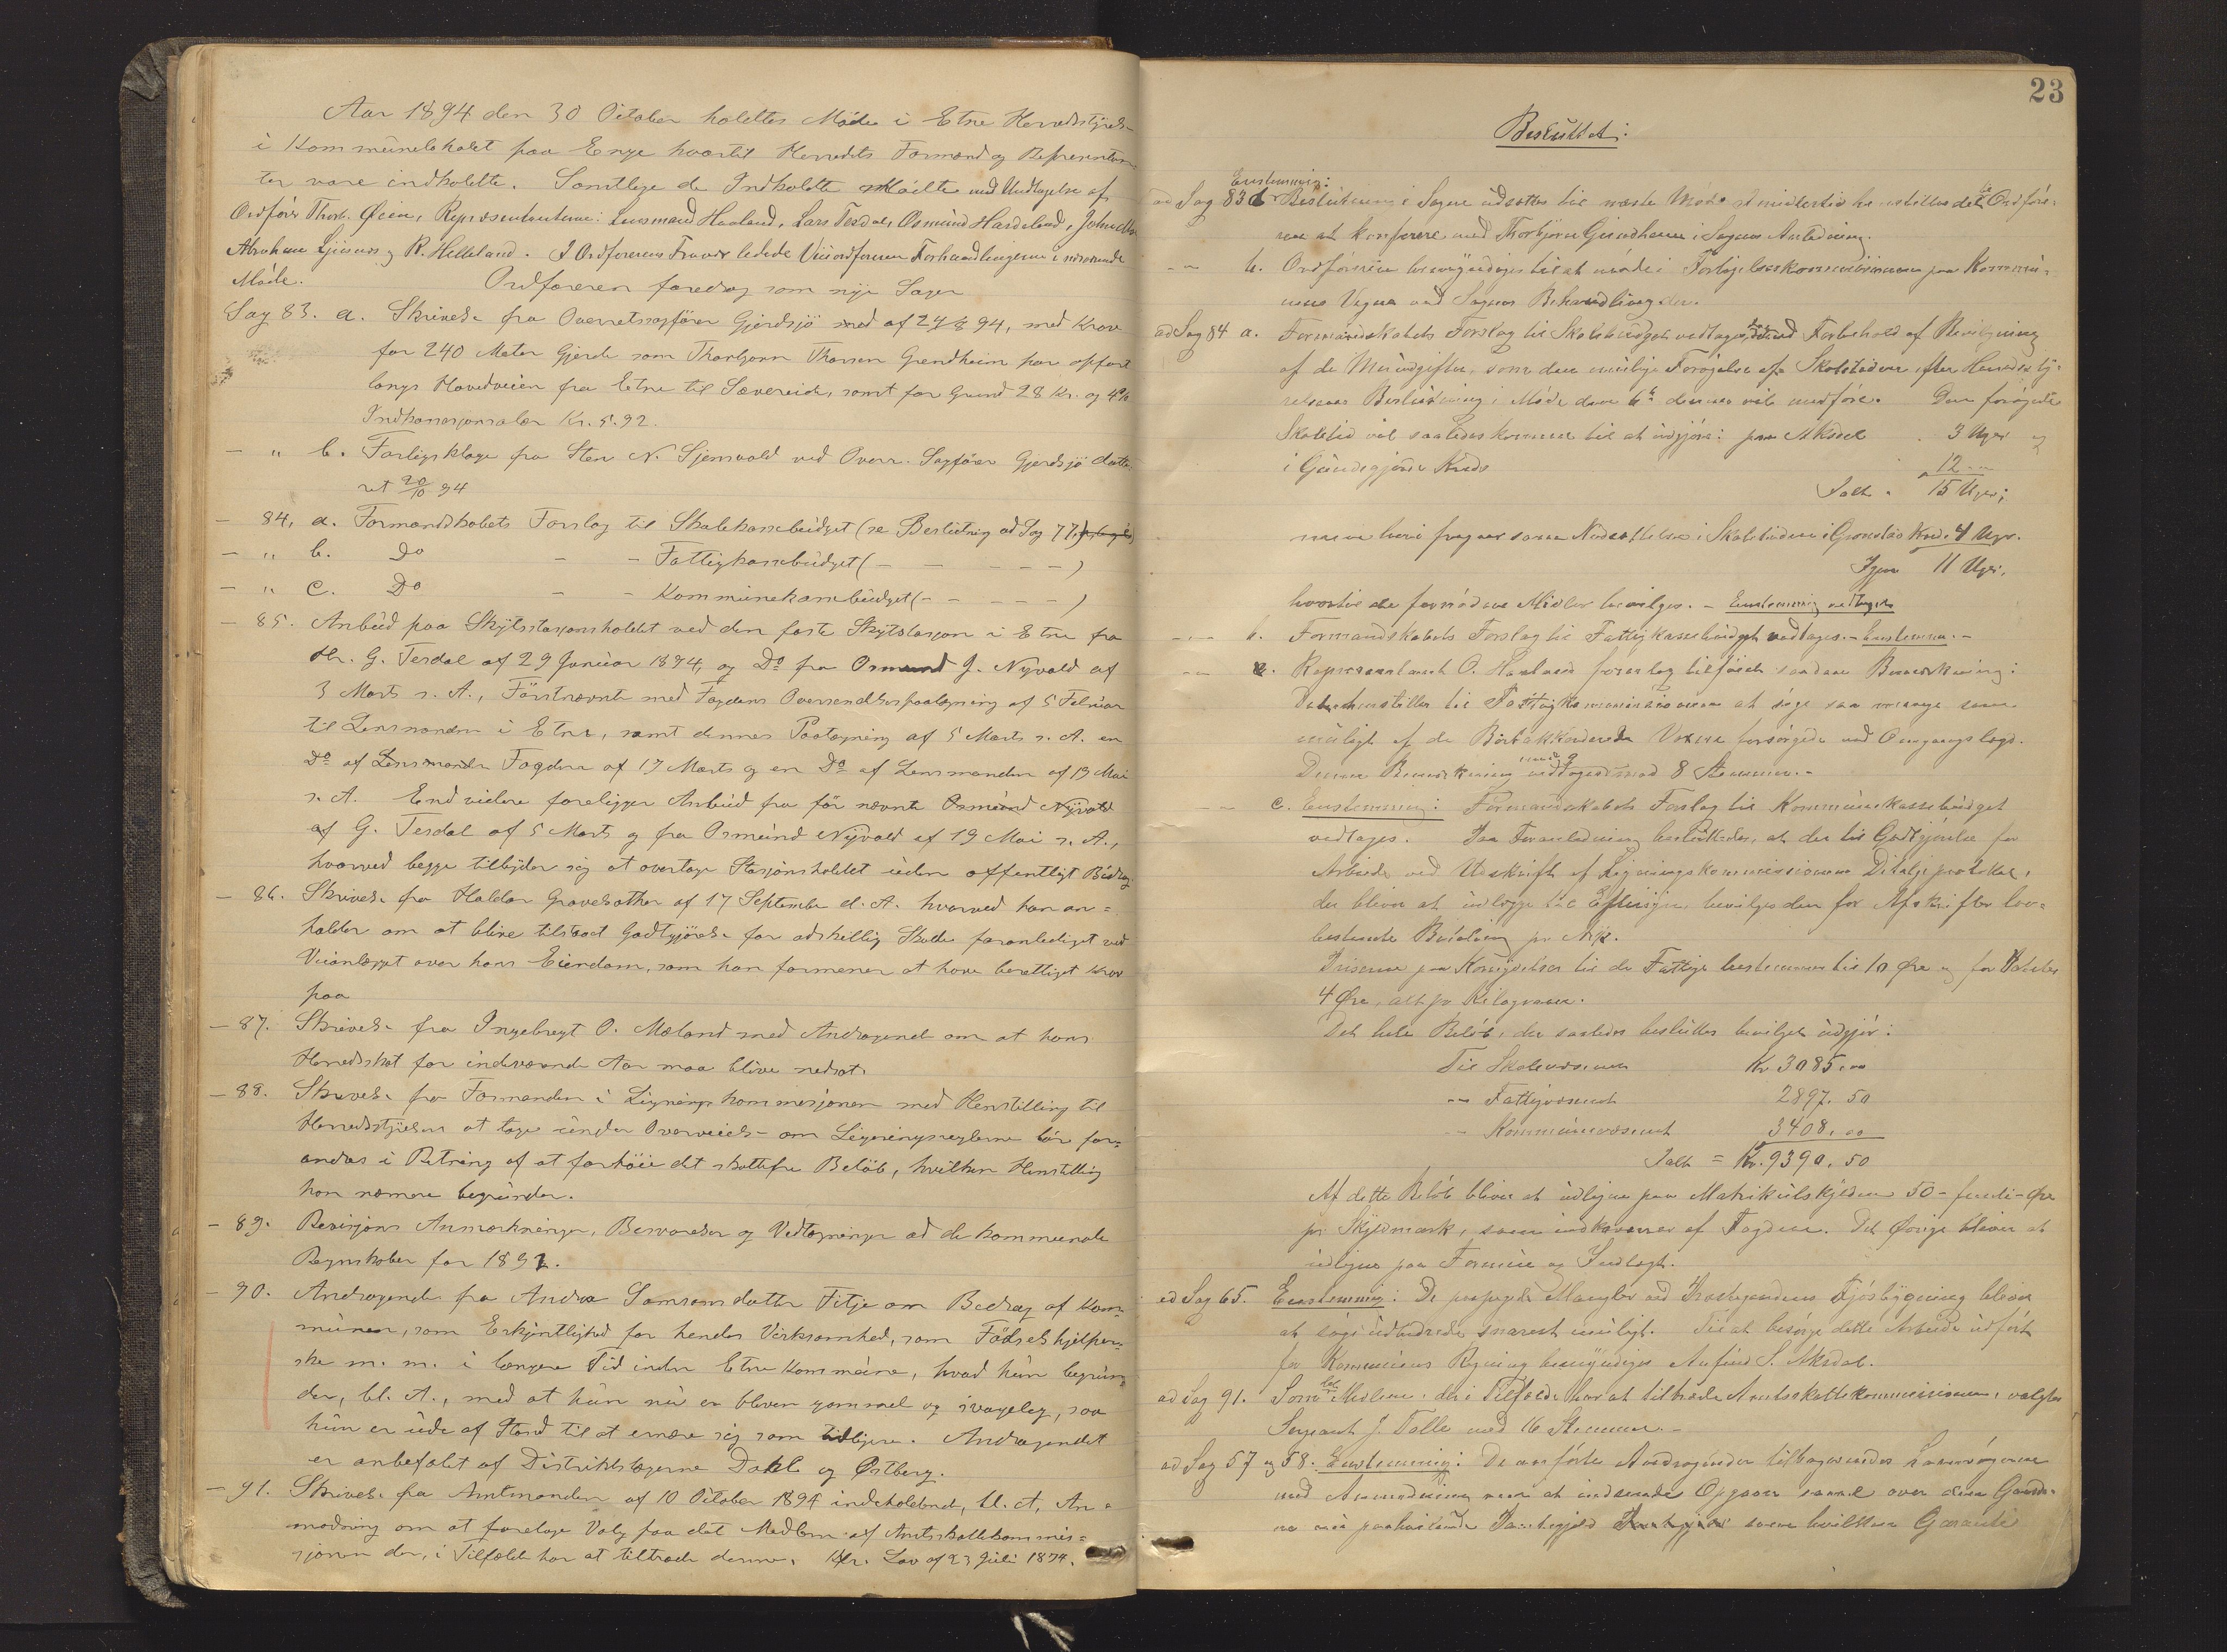 Aar 1894 den 30 October holdtes Møde i Etne Herredsstyrelse
i Kommunelokalet paa Enge hvortil Herredets Formænd og Repræsentan-
ter vare indkaldte. Samtlige de Indkaldte mødte med Undtagelse af
Ordfører Thorb. Øien, Repræsentanterne: Haaland, Lars Tesdal, Osmund Hardeland, John
Abraham og R. Helleland. I Ordførerens Fravær ledede Viceordføreren Forhandlingerne i nærværende
Møde. Ordføreren foredrog som nye Sager
Sag 83. a. Skrivelse fra Overretssagfører Gjerdsjø af 94, med Krav
for 240 Meter Gjerde som Thorbjørn Thorsen Grendheim har opført
langs Hovedveien fra Etne til Sævereide, samt for Grund 28 Kr. og 4%
Kr. 5.92.
- " b. Forligsklage fra Sten N. Sjemvold ved Overr. Sagfører Gjerdsjø date-
ret 20/10 94
- 84, a. Formandskabets Forslag til Skolekassebudget (se Beslutning ad Sag 77)
- " b. Do - - Fattigkassebudget (- - - - -)
- " c. Do - - Kommunekassebudget (- - - - -)
- 85. Anbud paa Skytsstasjonsholdet ved den faste Skytsstasjon i Etne fra
Hr. G. Tesdal af 29 Januar 1894, og Do fra Osmund J. Nyvold af
3 Marts s. A., Førstnævnte med Fogdens Oversendelsespaategning af 5 Februar
til Lensmanden i Etne, samt dennes Paategning af 5 Marts s. A. en
Do af Fogden af 17 Marts og en Do af Lensmanden af 19 Mai
s. A. End videre foreligger Anbud fra før nævnte Osmund Nyvold
af G. Tesdal af 5 Marts og fra Osmund Nyvold af 19 Mai s. A.,
hvorved begge tilbyder sig at overtage Stasjonsholdet uden offentligt Bidrag.
- 86. Skrivelse fra Haldor Gravelsæther af 17 September d. A. hvorved han an=
holder om at blive tilstaaet Godtgjørelse for adskillig Skade foranlediget ved
Veianlægget over hans Eiendom, som han formener at have berettiget Krav
paa
- 87. Skrivelse fra Ingebregt O. Mæland med Andragende om at hans
Herredsskat for indeværende Aar maa blive nedsat.
- 88. Skrivelse fra Formanden i Ligningskommisjonen med Henstilling til
Herredsstyrelsen at tage under Overveielse om Ligningsreglerne bør for=
andres i Retning af at forhøie det skattefri Beløb, hvilken Henstilling
han nærmere begrunder.
- 89. Revisjons Anmærkninger, Besvarelser og Vedtegninger ad de kommunale
Regnskaber for 1892.
- 90. Andragende fra Andrea Samsonsdatter Fitje om Bedrag af Kom-
munen, som Erkjentlighed for hendes Virksomhed, som Fødselshjelper-
ske m. m. i længere Tid inden Etne Kommune, hvad hun begrun-
der, bl. A., med at hun nu er bleven gammel og svagelig, saa
hun er ude af Stand til at ernære sig som tidligere. Andragendet
er anbefalet af Distriktslægerne Dahl og Østberg.
- 91. Skrivelse fra Amtmanden af 10 October 1894 indeholdende, bl. A. An=
modning om at foretage Valg paa det Medlem af Amtsskattekommis=
sjonen der, i Tilfælde har at tiltræde denne. Kfr. Lov af 23 Juli 1894.
23
Besluttet:
Enstemmig:
ad Sag 83 a. Beslutning i Sagen udsættes til næste Møde at imidlertid henstilles det til Ordføre-
ren at konferere med Thorbjørn Grindheim i Sagens Anledning.
- " - b. Ordføreren bemyndiges til at møde i Forligelseskommissionen paa Kommu-
nens Vegne ved Sagens Behandling der.
ad Sag 84 a. Formandskabets Forslag til Skolebudget vedtages, med Forbehold af Bevilgning
af de Merudgifter, som den mulige Forøgelse af Skoletiden efter Herredssty-
relsens Beslutning i Møde den 6te dennes vil medføre. Den forøgede
Skoletid vil saaledes komme til at udgjøre: paa Aksdel 3 Uger og
i Grindsgjerde Kreds 12 "
Ialt . 15 Uger;
men herfra gaar som Nedsættelse i Skoletiden i Kreds 4 Uger.
Igjen 11 Uger.
hvortil de fornødne Midler bevilges. - Enstemmig vedtaget
- " - b. Formandskabets Forslag til Fattigkassebudget vedtages. - Enstemm. -
- " - Repræsentant O. Haaland foreslog tilføiet saadan Bemærkning:
Det henstilles til Fattigkommissionen at søge saa mange som
muligt af de Bortakkorderede Voxne forsørgede ved Omgangslægd.
Denne Bemærkning vedtoges mod 8 Stemmer. -
- " - c. Enstemmig: Formandskabets Forslag til Kommunekassebudget
vedtages. Paa Foranledning besluttedes, at der til Godtgjørelse for
Arbeide ved Udskrift af Ligningskommissionens Detaljeprotokol,
der bliver at udlægge til Eftersyn bevilges den for Afskrifter lov=
bestemte Betaling pr. Ark.
Priserne paa Kornydelser til de Fattige bestemmes til 10 Øre og for Poteter
4 Øre, alt pr Kilogram.
Det hele Beløb, der saaledes besluttes bevilget udgjør:
Til Skolevæsenet Kr. 3085.00
- " - Fattigvæsenet 2897.50
- " - Kommunevæsenet 3408.00
Ialt = Kr. 9390.50
Af dette Beløb bliver at udligne paa Matrikulskylden 50 - femti - Øre
pr. Skyldmark, som indkræves af Fogden. Det Øvrige bliver at
udligne paa Formue og Indtægt.
ad Sag 65. Enstemmig: De paapegede Mangler ved Præstegaardens Fjøsbygning bliver
at søge udbedrede snarest muligt. Til at besørge dette Arbeide udført
for Kommunens Regning bemyndiges Anfind S. Aksdal.
ad Sag 91. Som Medlem, der i Tilfælde har at tiltræde Amtsskattekommissionen, valgtes
Sergeant J. Tolle med 16 Stemmer. -
ad Sag 57 og 58. Enstemmig: De anførte Andragender tilbagesendes Laansøgerne
med Anmodning om at indsende Opgaver saavel over den Gaarde-
ne nu paahvilende Pantegjeld som hvilken Garanti